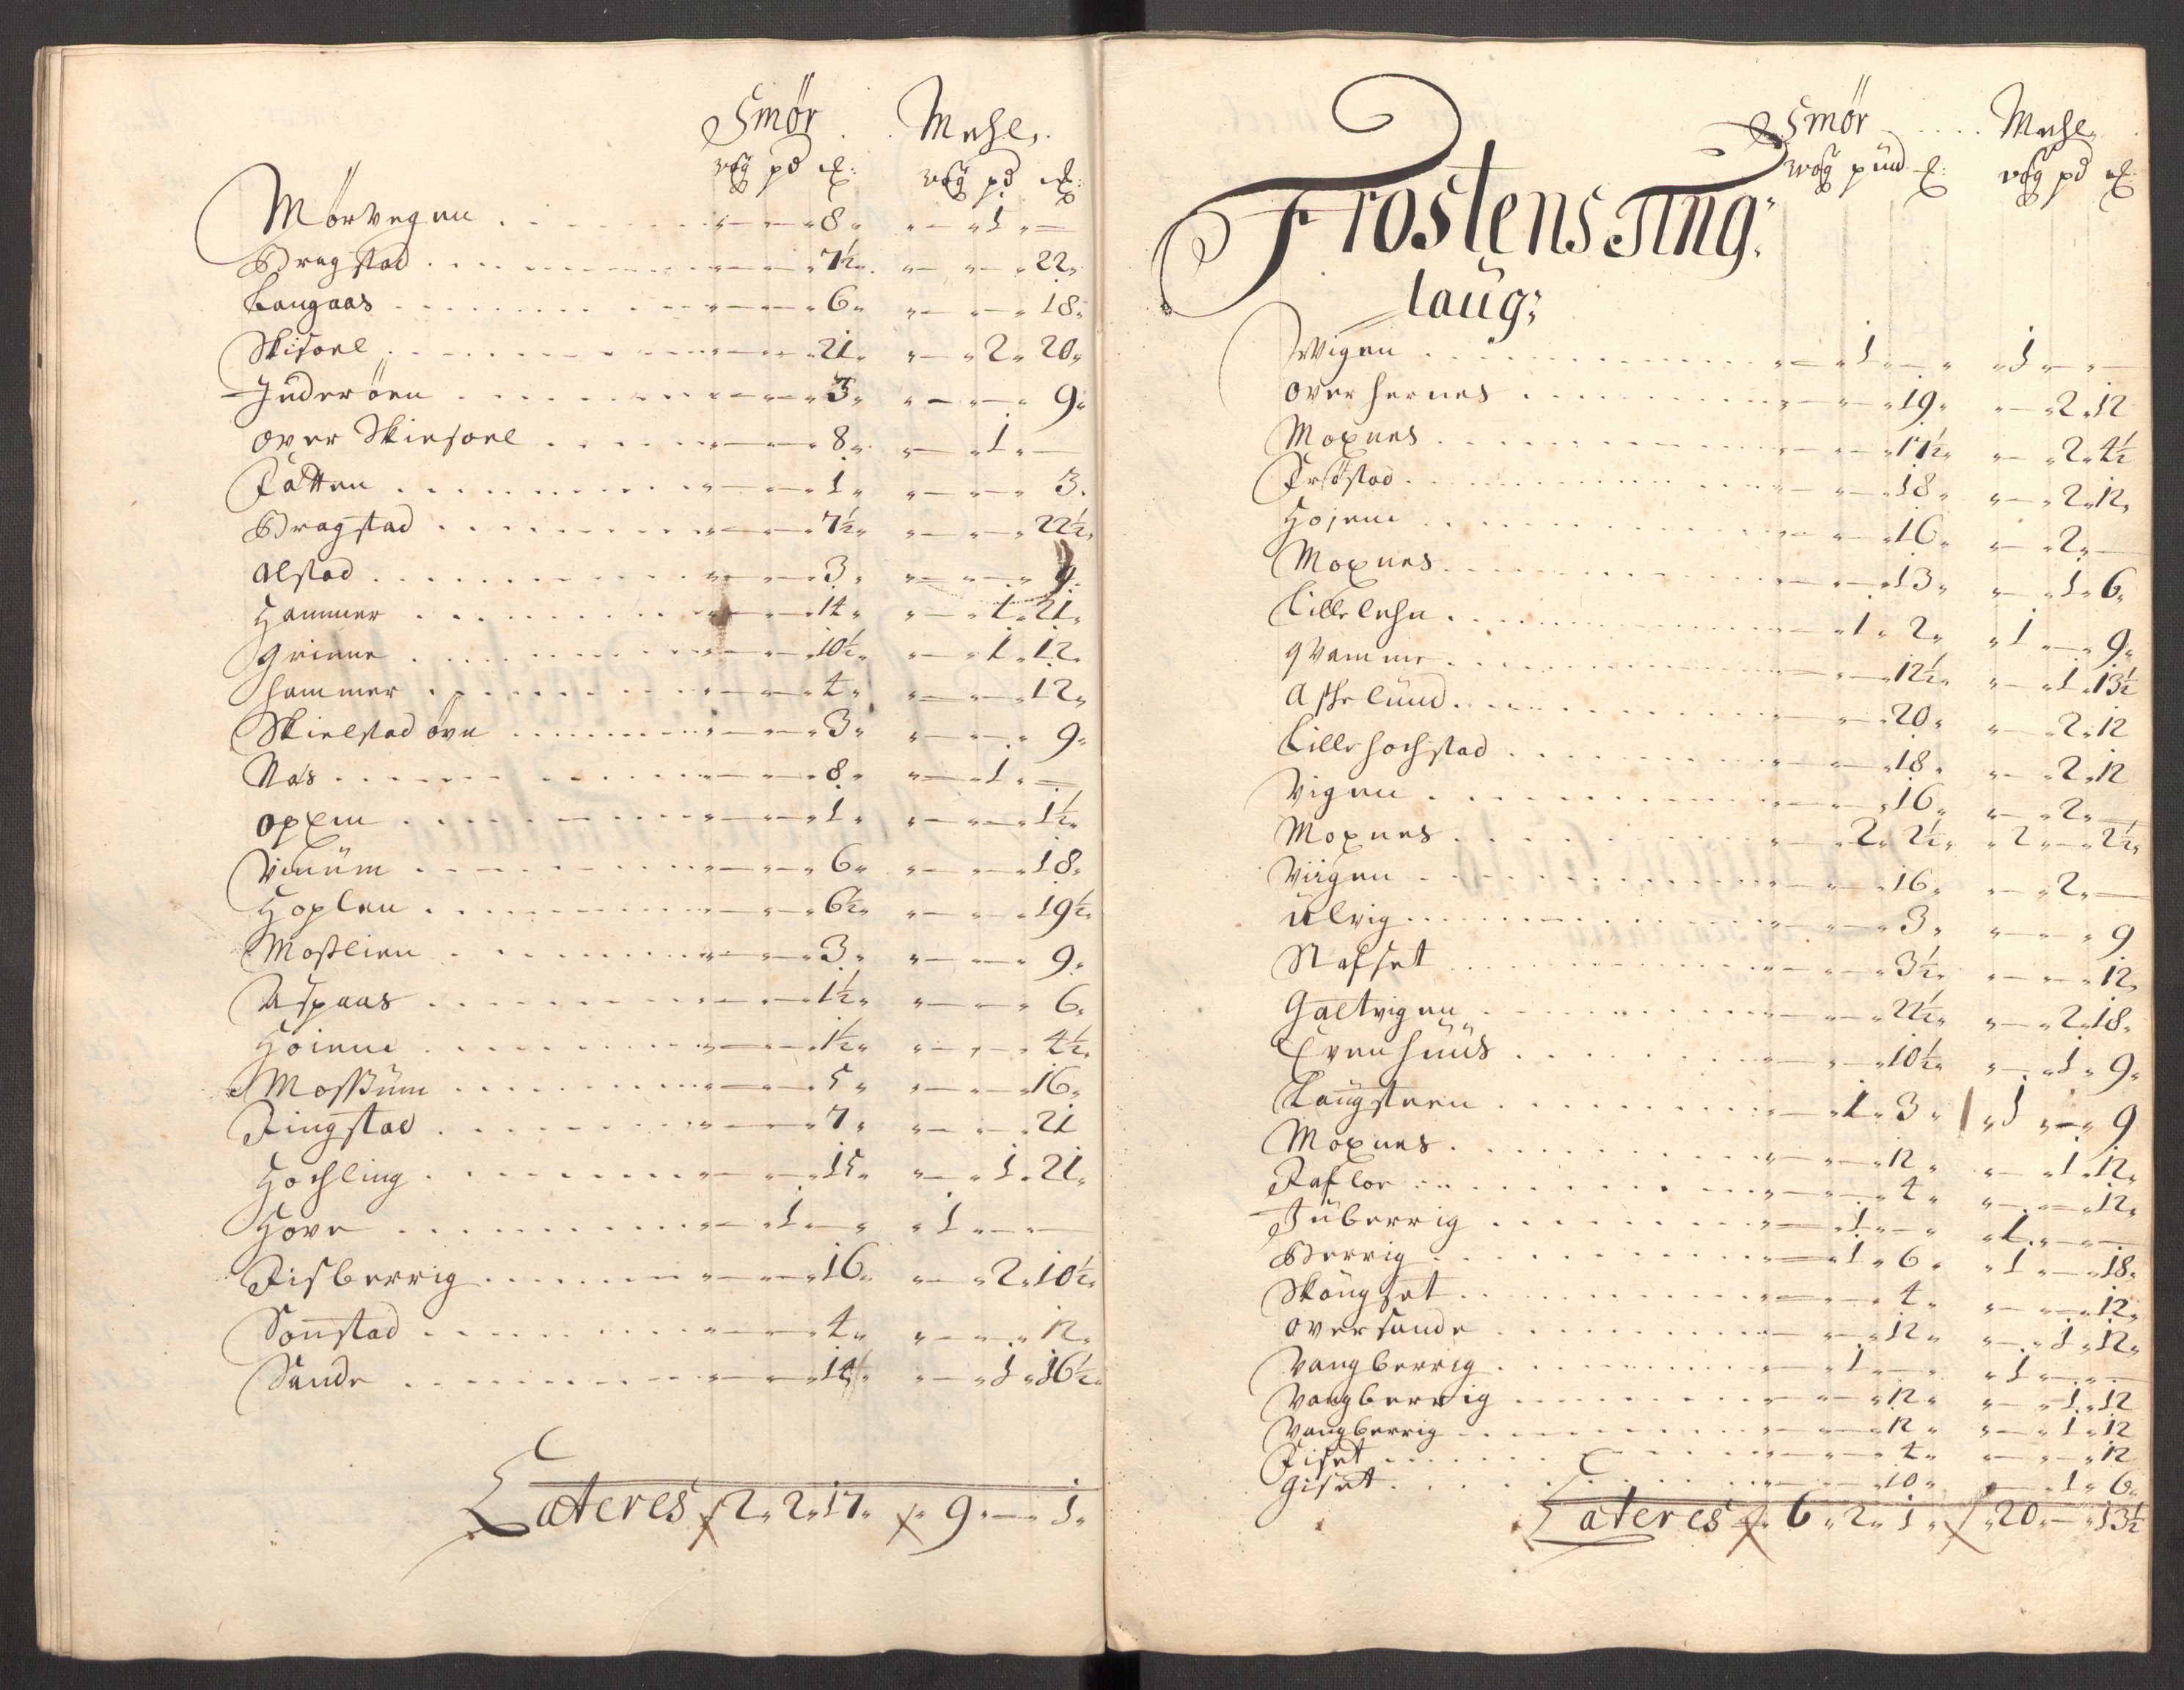 Smør Mehl
wog pd ℔: wog pd ℔:
Mørvegen „ — „ — „ 8 „ „ — „ 1 „ —
Bragstad „ — „ — „ 7½ „ „ — „ — „ 22 „
Langaas „ — „ — „ 6 „ „ — „ — „ 18 „
Skisoel „ — „ — „ 21 „ „ — „ 2 „ 20 „
Inderöen „ — „ — „ 3 „ „ — „ — „ 9 „
over Skiesoel „ — „ — „ 8 „ „ — „ 1 „ —
Fætten „ — „ — „ 1 „ „ — „ — „ 3 „
Bragstad „ — „ — „ 7½ „ „ — „ — „ 22½ „
Alstad „ — „ — „ 3 „ „ — „ — „ 9 „
Hammer „ — „ — „ 14 „ „ — „ 1 „ 21 „
Grinne „ — „ — „ 10½ „ „ — „ 1 „ 12 „
hammer „ — „ — „ 4 „ „ — „ — „ 12 „
Skielstad övr „ — „ — „ 3 „ „ — „ — „ 9 „
Næs „ — „ — „ 8 „ „ — „ 1 „ —
opxm „ — „ — „ 1 „ „ — „ — „ 1½ „
Vinüm „ — „ — „ 6 „ „ — „ — „ 18 „
Hoplen „ — „ — „ 6½ „ „ — „ — „ 19½ „
Mosslien „ — „ — „ 3 „ „ — „ — „ 9 „
Aspaas „ — „ — „ 1½ „ „ — „ — „ 6 „
Höiem „ — „ — „ 1½ „ „ — „ — „ 4½ „
Mossüm „ — „ — „ 5 „ „ — „ — „ 16 „
Fingstad „ — „ — „ 7 „ „ — „ — „ 21
Hochling „ — „ — „ 15 „ „ — „ 1 „ 21 „
Hove „ — „ 1 „ — „ „ 1 „ — „ —
Fisberrig „ — „ — „ 16 „ „ — „ 2 „ 10½ „
Sonstad „ — „ — „ 4 „ „ — „ — „ 12 „
Sande „ — „ — „ 14 „ „ — „ 1 „ 16½ „
Lateres „ 2 „ 2 „ 17 „ „ 9 „ — „ 1 „
Smør Mehl
wog pund ℔: wog pd ℔
Frostens Ting
laug
Wigen „ — „ 1 „ — „ „ 1 „ — „ —
over hernes „ — „ — „ 19 „ „ — „ 2 „ 12
Moxnes „ — „ — „ 17½ „ „ — „ 2 „ 4½
Fröstad „ — „ — „ 18 „ „ — „ 2 „ 12 „
Hojem „ — „ — „ 16 „ „ — „ 2 „ —
Moxnes „ — „ — „ 13 „ „ — „ 1 „ 6 „
Lille lehn „ — „ 1 „ 2 „ „ 1 „ — „ 9 „
qvamme „ — „ — „ 12½ „ „ — „ 1 „ 13½
Aske lund „ — „ — „ 20 „ „ — „ 2 „ 12
Lille hochstad „ — „ — „ 18 „ „ — „ 2 „ 12
Vigen „ — „ — „ 16 „ „ — „ 2 „ —
Moxnes „ — „ 2 „ 2½ „ „ 2 „ — „ 2½ „
Viigen „ — „ — „ 16 „ „ — „ 2 „ —
Ulvig „ — „ — „ 3 „ „ — „ — „ 9
Stafset „ — „ — „ 3½ „ „ — „ — „ 12 „
Galtvigen „ — „ — „ 22½ „ „ — „ 2 „ 18 „
Evenhuus „ — „ — „ 10½ „ „ — „ 1 „ 9 „
Langsteen „ — „ 1 „ 3 „ „ 1 „ — „ 9
Moxnes „ — „ — „ 12 „ „ — „ 1 „ 12 „
Faflor „ — „ — „ 4 „ „ — „ — „ 12 „
Juberrig „ — „ 1 „ — „ „ 1 „ — „ —
Berrig „ — „ 1 „ 6 „ „ 1 „ — „ 18 „
Skougset „ — „ — „ 4 „ „ — „ — „ 12 „
oversande „ — „ — „ 12 „ „ — „ 1 „ 12 „
Vangberrig „ — „ 1 „ — „ „ 1 „ — „ —
Vangberrig „ — „ — „ 12 „ „ — „ 1 „ 12
Vangberrig „ — „ — „ 12 „ „ — „ 1 „ 12
Fiset „ — „ — „ 4 „ „ — „ — „ 12
Giset „ — „ — „ 10 „ „ — „ 1 „ 6 „
Lateres „ 6 „ 2 „ 1 „ „ 20 „ — „ 13½